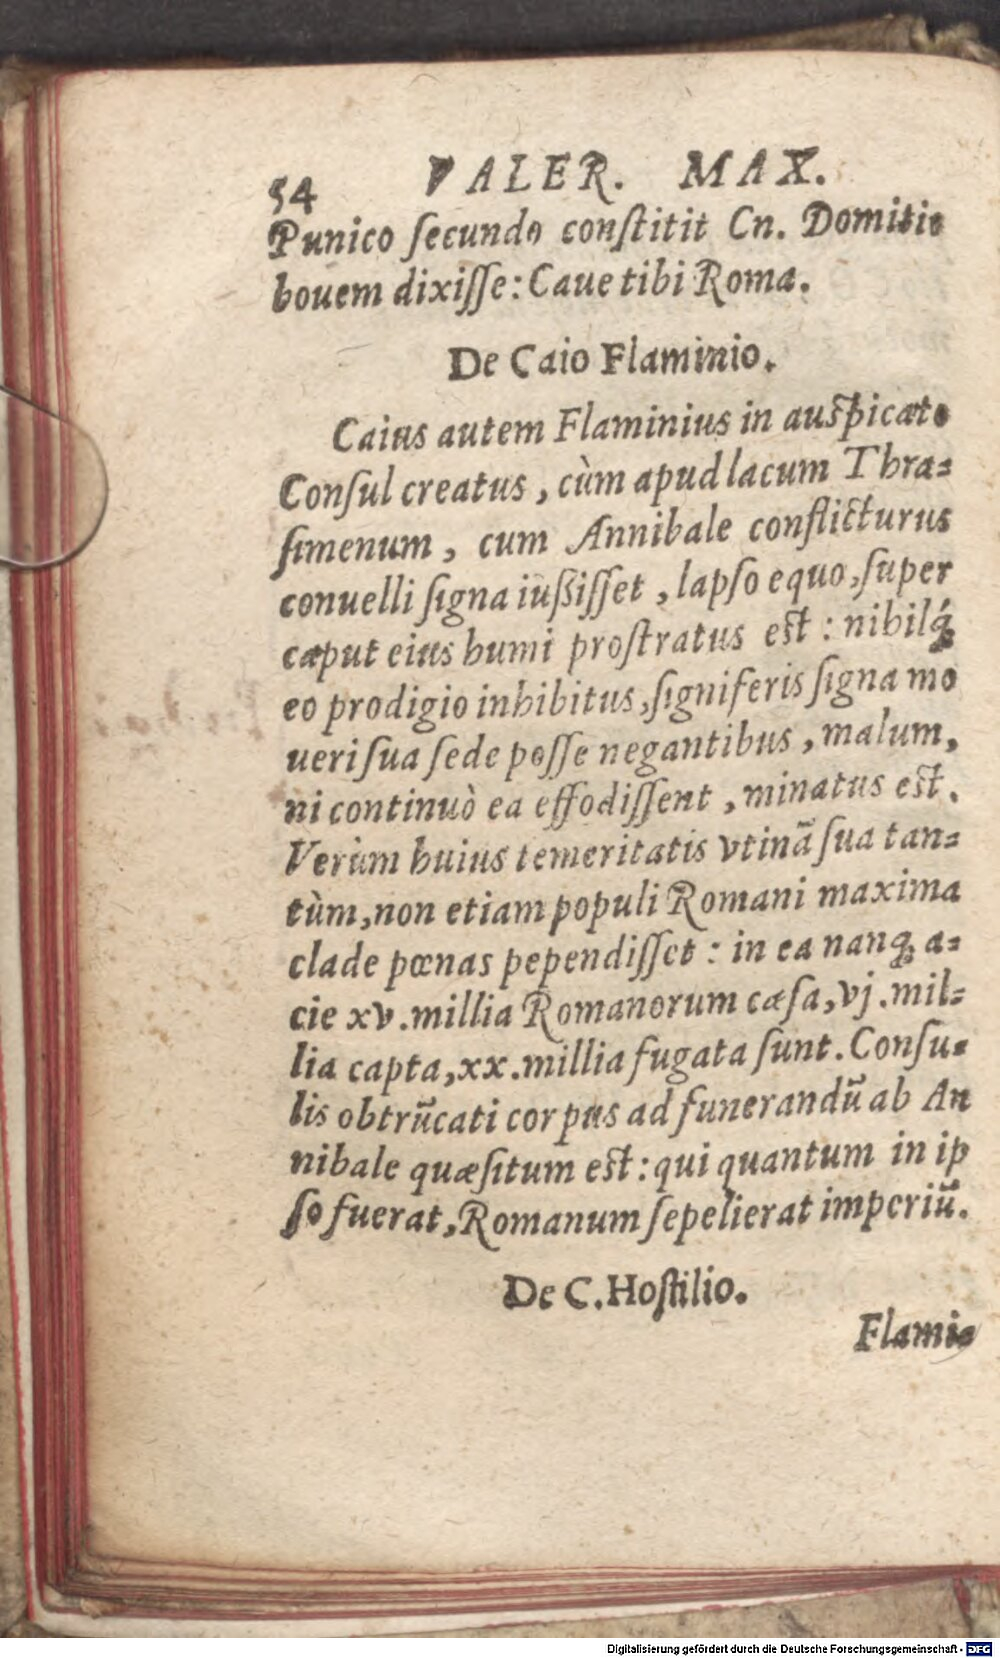 54 VALER. MAX.
Punico ſecundo conſtitit Cn. Domitio
bouem dixiſſe: Caue tibi Roma.
De Caio Flaminio.
Caius autem Flaminius in auſpicato
Conſul creatus, cùm apud lacum Thra-
ſimenum, cum Annibale conflicturus
conuelli ſigna iußiſſet, lapſo equo, ſuper
caput eius humi proſtratus eſt: nihilq́;
eo prodigio inhibitus, ſigniferis ſigna mo
ueri ſua ſede poſſe negantibus, malum,
ni continuò ea effodiſſent, minatus eſt.
Verùm huius temeritatis vtinã ſua tan-
tùm, non etiam populi Romani maxima
clade pœnas pependiſſet: in ea nanq; a-
cie xv. millia Romanorum cæſa, vj. mil-
lia capta, xx. millia fugata ſunt. Conſu-
lis obtrũcati corpus ad funerandũ ab An
nibale quæſitum eſt: qui quantum in ip
ſo fuerat, Romanum ſepelierat imperiũ.
De C. Hoſtilio.
Flami-
Digitalisierung gefördert durch die Deutsche Forschungsgemeinschaft - DFG